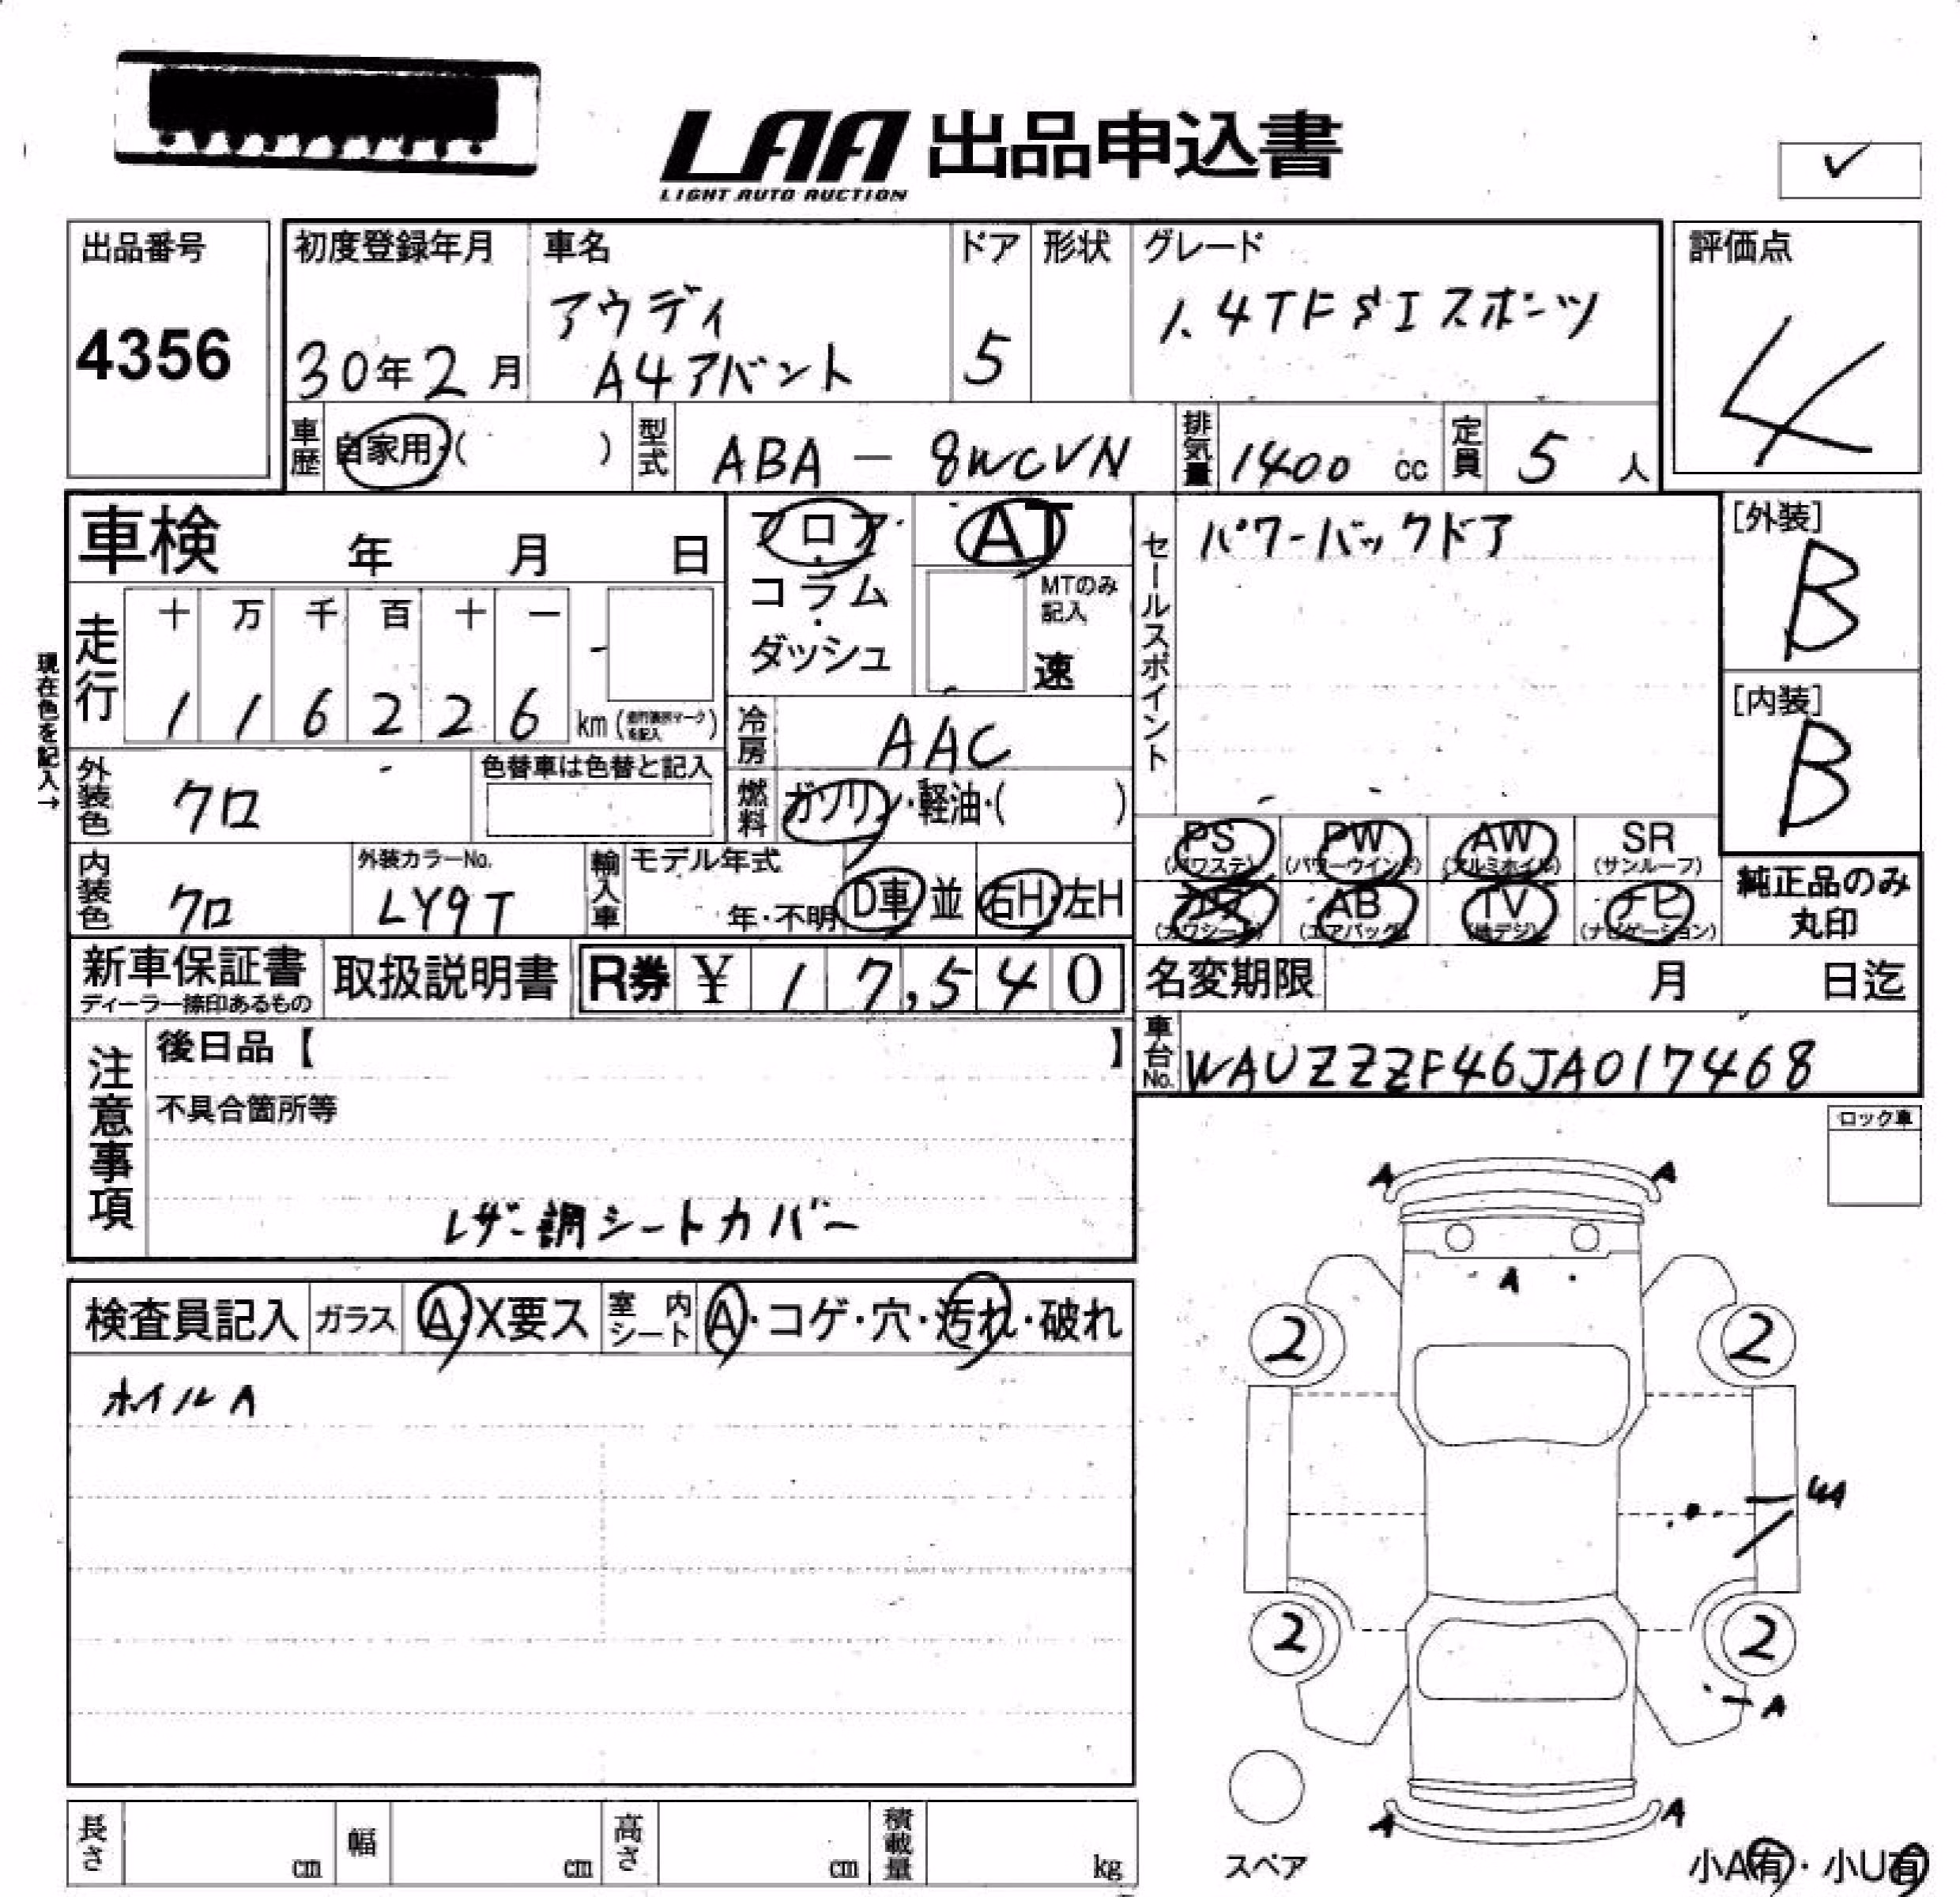 LAA 出品申込書
LIGHT AUTO AUCTION
✓
出品番号
4356
初度登録年月
30年2月
車名
アウディ
A4アバント
ドア
5
形状
グレード
1.4TFSIスポーツ
評価点
4
車歴
自家用・( )
型式
ABA-8WCVN
排気量
1400 cc
定員
5 人
車検 年 月 日
フロア・
コラム
・
ダッシュ
AT
MTのみ
記入
速
セールスポイント
パワーバックドア
[外装]
B
[内装]
B
現在色を記入→
走行
十 万 千 百 十 一
1 1 6 2 2 6 km
冷房
AAC
外装色
クロ
色替車は色替と記入
燃料
ガソリン・軽油・( )
内装色
クロ
外装カラーNo.
LY9T
輸入車
モデル年式
年・不明
D車 並
右H・左H
PS
(パワステ)
PW
(パワーウインド)
AW
(アルミホイル)
SR
(サンルーフ)
(カワシート)
AB
(エアバック)
TV
(地デジ)
ナビ
(ナビゲーション)
純正品のみ
丸印
新車保証書
ディーラー捺印あるもの
取扱説明書
R券 ¥ 17,540
名変期限 月 日迄
車台No.
WAUZZZF46JA017468
注意事項
後日品【 】
不具合箇所等
レザー調シートカバー
ロック車
検査員記入
ガラス
A・X要ス
室内
シート
A・コゲ・穴・汚れ・破れ
ホイルA
A A
A
2 2
UA
2 2
A
A A
スペア
小A有・小U有
長さ cm
幅 cm
高さ cm
積載量 kg